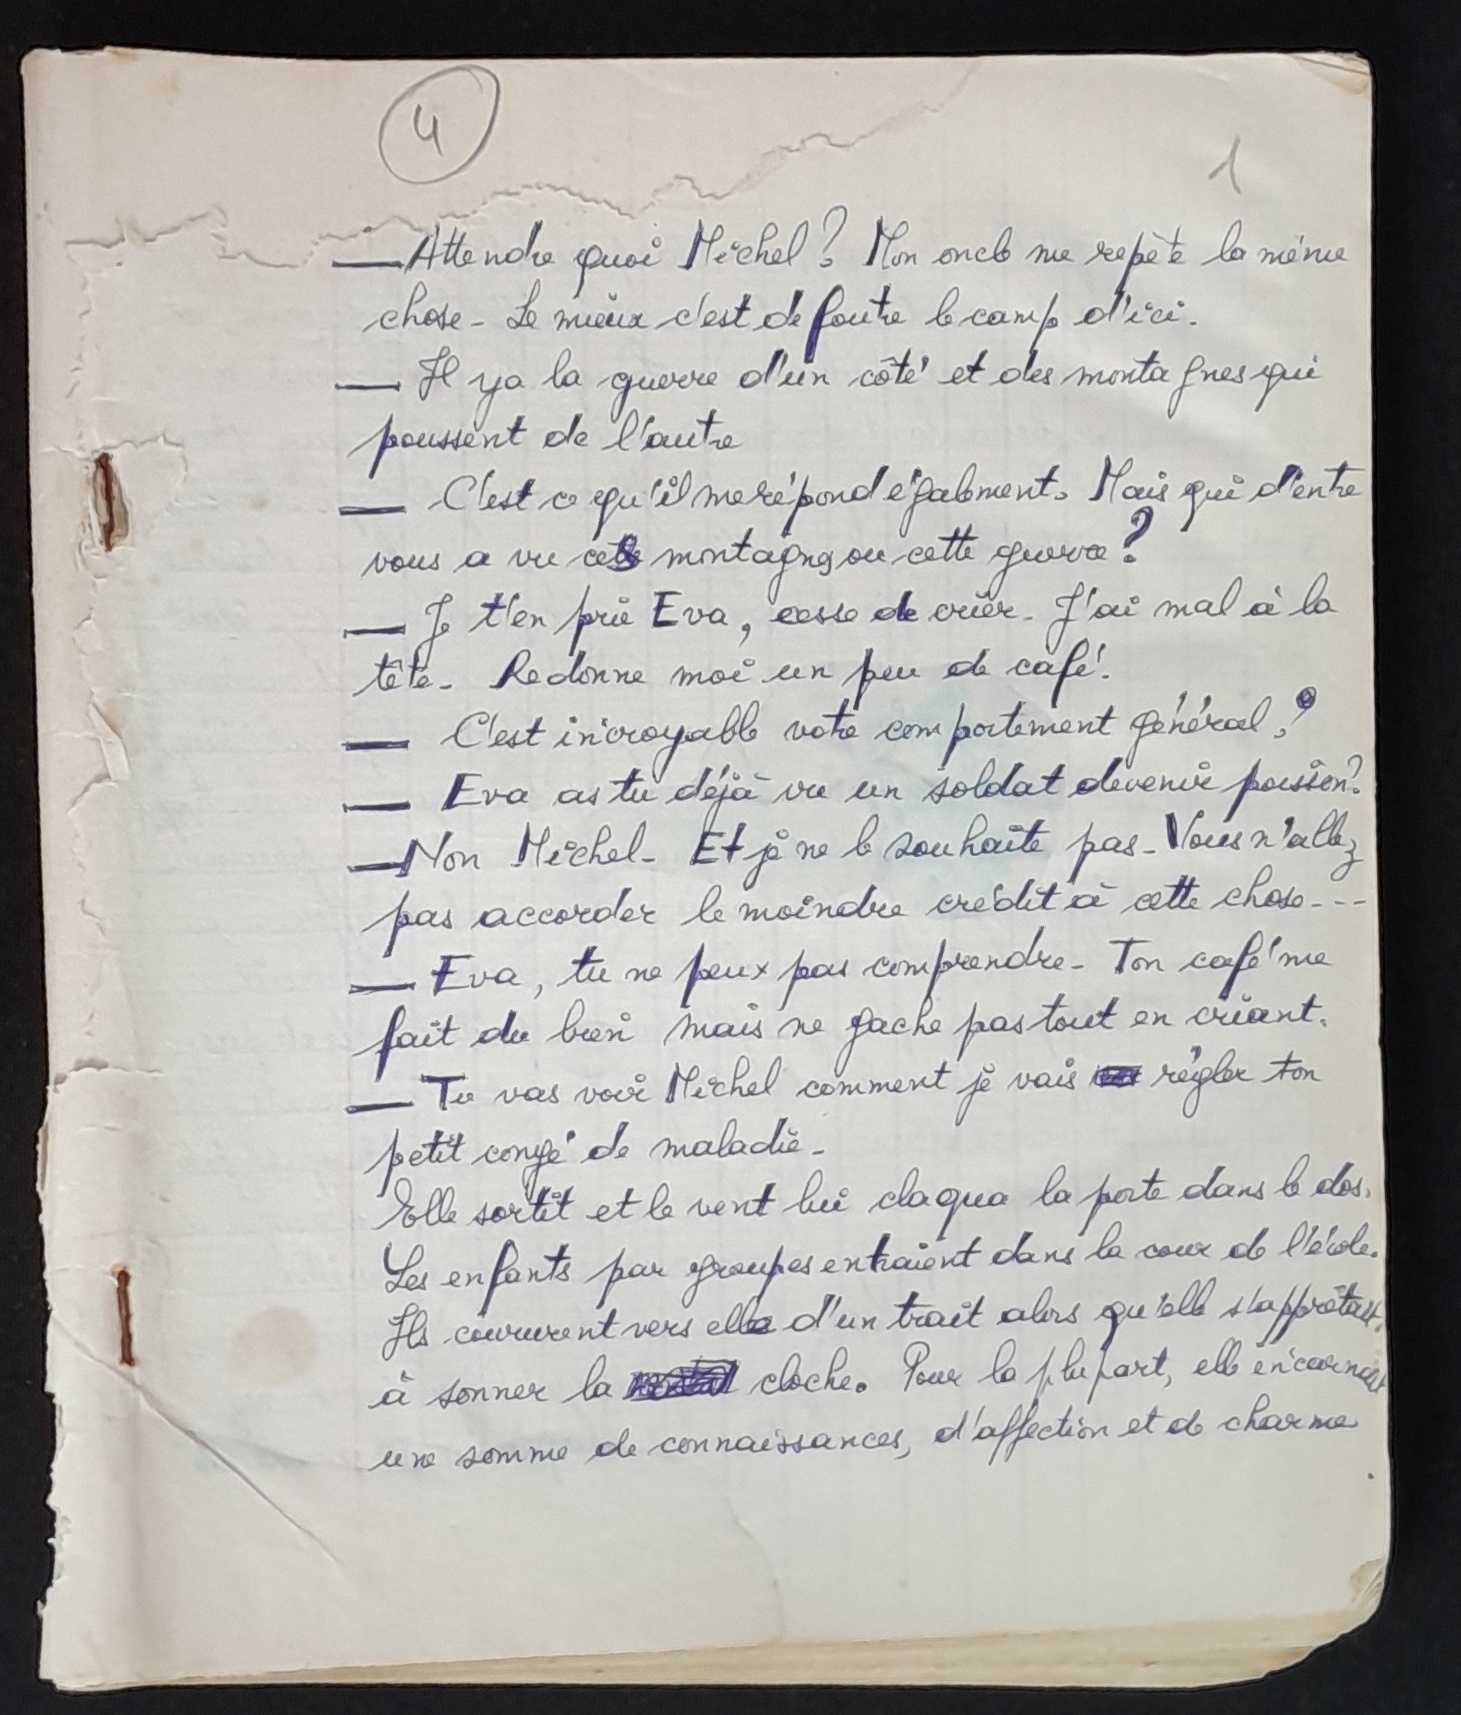 4
1
— Attendre quoi Michel ? Mon oncle me repète la même
chose - Le mieux c'est de foutre le camp d'ici.
— Il ya la guerre d'un côté et des montagnes qui
poussent de l'autre
— C'est ce qu'il me répond également. Mais qui d'entre
vous a vu ces montagnes ou cette guerre ?
— Je t'en prie Eva, cesse de crier. J'ai mal à la
tête - Redonne moi un peu de café.
— C'est incroyable votre comportement général !
— Eva as tu déjà vu un soldat devenir poisson ?
— Non Michel - Et je ne le souhaite pas - Vous n'allez
pas accorder le moindre crédit à cette chose - - -
— Eva, tu ne peux pas comprendre - Ton café me
fait du bien mais ne gache pas tout en criant.
— Tu vas voir Michel comment je vais régler ton
petit congé de maladie -
Elle sortit et le vent lui claqua la porte dans le dos.
Les enfants par groupes entraient dans la cour de l'école.
Ils coururent vers elle d'un trait alors qu'elle s'apprêtait
à sonner la cloche. Pour la plupart, elle incarnait
une somme de connaissances, d'affection et de charme